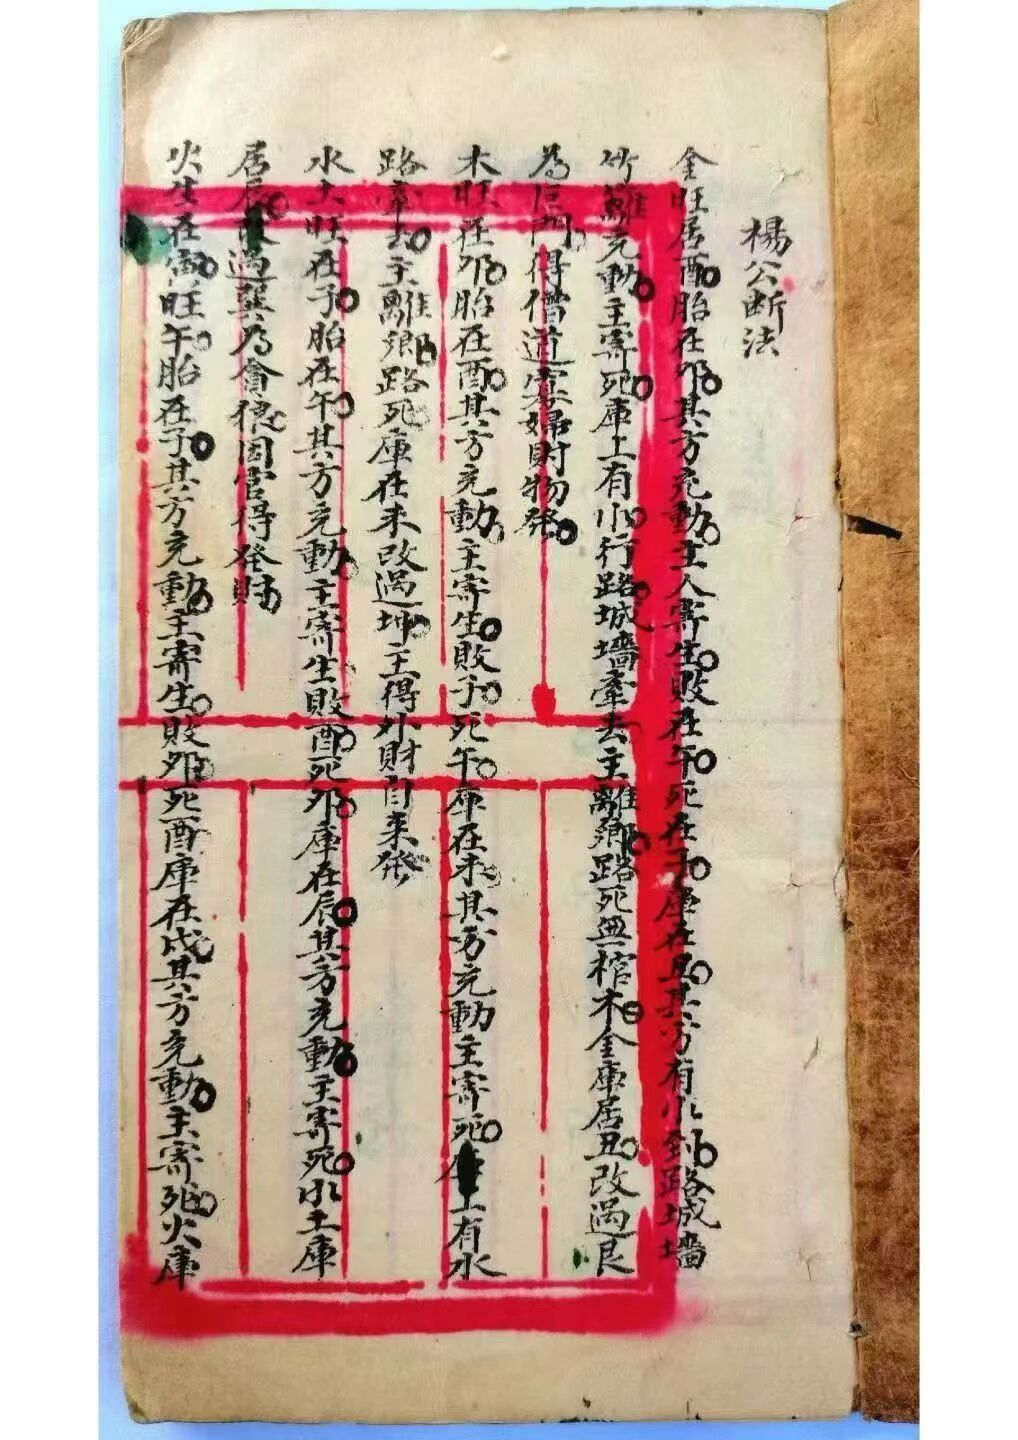 楊公断法
金旺居酉胎在卯其方充動主人寄生敗在午死在子庫在丑其方有水到路城墻
竹籬充動主寄死庫上有水行路城墻牽去主離鄉路死無棺木金庫居丑改過艮
為巨門得僧道寡婦財物發
木旺在卯胎在酉其方充動主寄生敗子死午庫在未其方充動主寄死庫上有水
路牽去主離鄉路死庫在未改過坤主得外財自来發
水土旺在子胎在午其方充動主寄生敗酉死卯庫在辰其方充動主寄死水土庫
居辰改過巽為貪狼因官得發財
火生在寅旺午胎在子其方充動主寄生敗卯死酉庫在戌其方充動主寄死火庫